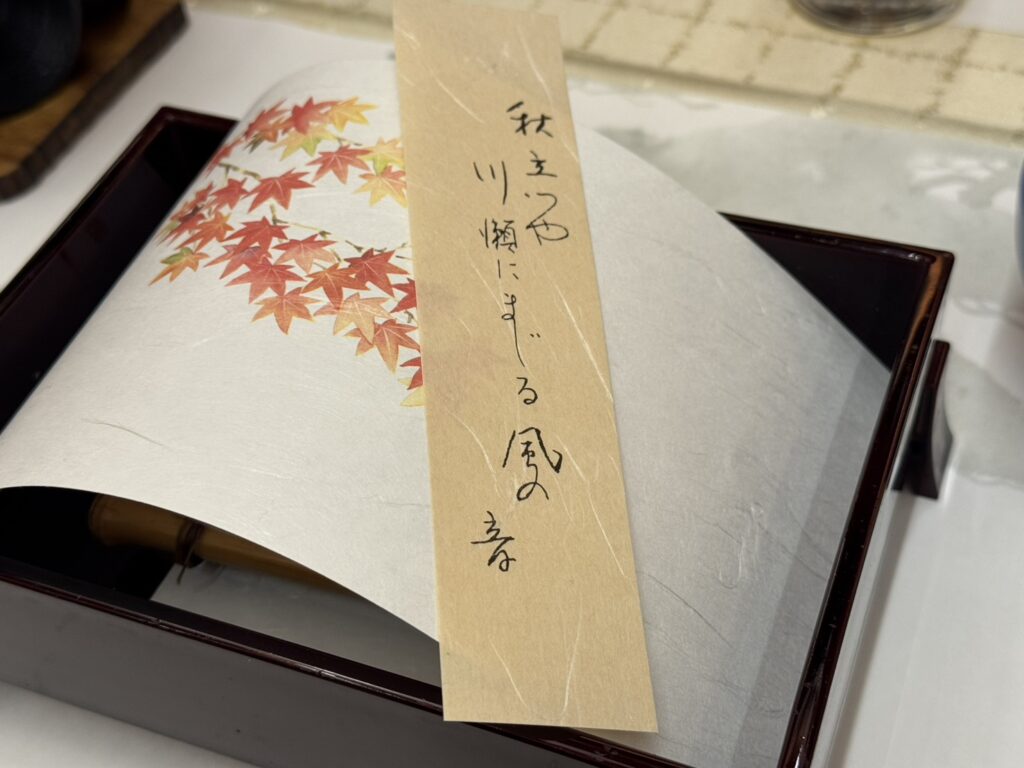 秋立つや
川瀬にまじる風の音